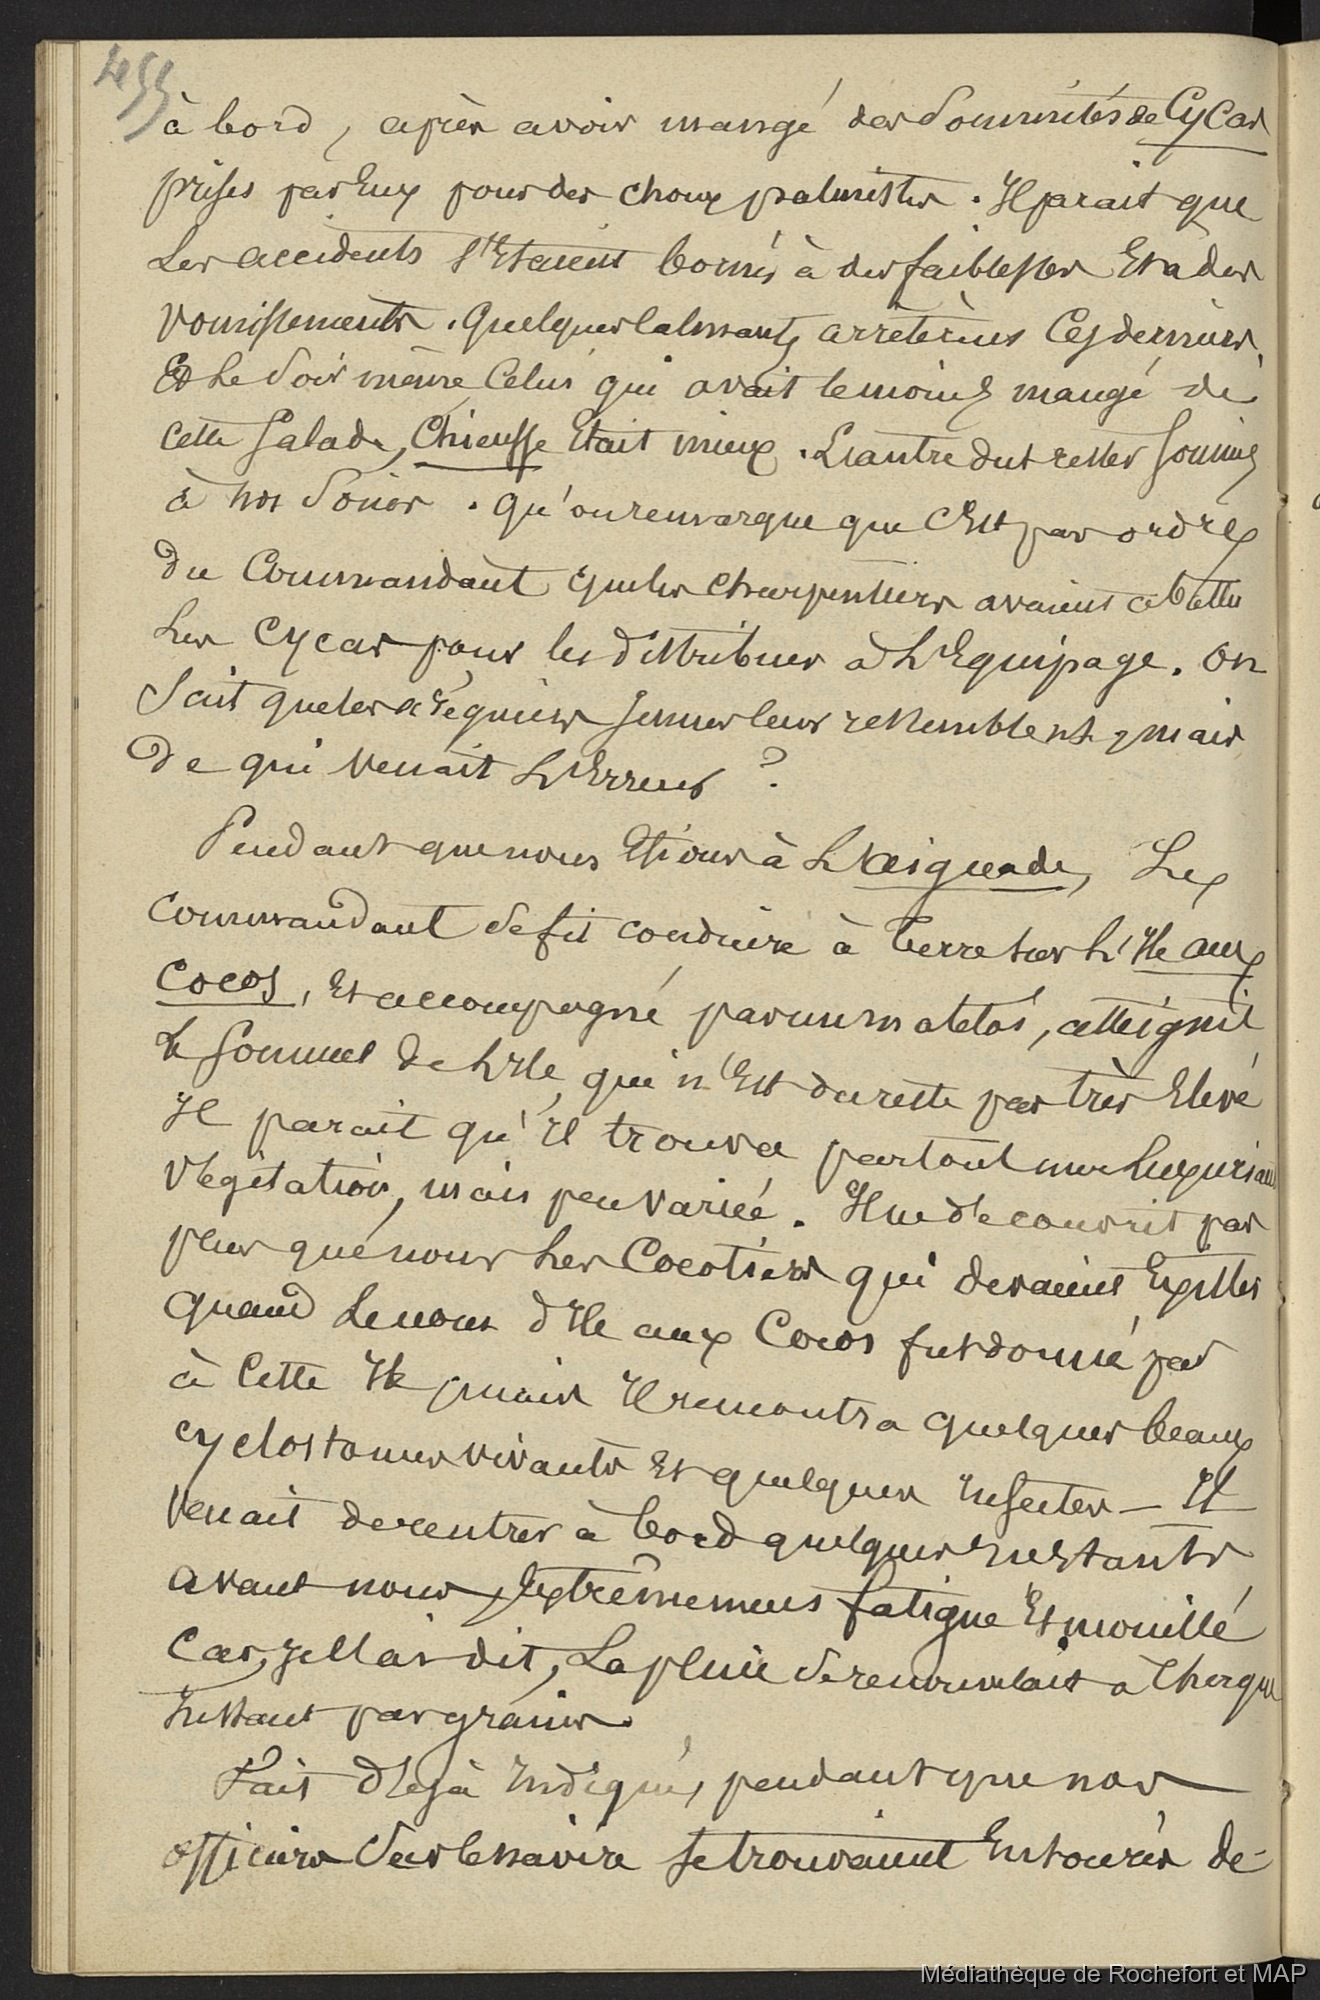 455
à bord, après avoir mangé des Sommités de Cycas
prises par Eux pour des choux palmistes. Il parait que
Les accidents s'Etaient bornés à des faiblesses Et à des
vomissements. Quelques calmants arrêtèrent Ces derniers,
Et Le Soir même Celui qui avait le moins mangé de
cette Salade, Chieusse Etait mieux. L'autre dut rester soumis
à nos Soins. Qu'on remarque que C'Est par ordre
du Commandant que les charpentiers avaient abattu
Les Cycas pour les distribuer à L'Equipage. On
Sait que les aréquiers seuls leur ressemblent, mais
de qui venait L'Erreur ?
Pendant que nous Etions à L'Aiguade, Le
Commandant se fit conduire à terre sur L'Ile aux
Cocos, Et accompagné par un matelot, atteignit
Le sommet de L'Ile, qui n'Est du reste pas très Elevé
Il parait qu'Il trouva partout une Luxuriante
Végétation, mais peu variée. Il ne découvrit pas
plus que nous Les Cocotiers qui devaient Exister
quand Le nom d'Ile aux Cocos fut donné par
à Cette Ile, mais Il rencontra quelques beaux
cyclostomes vivants Et quelques Insectes — Il
Venait de rentrer à bord quelques Instants
avant nous, Extrêmement fatigué Et mouillé
Car, je l'ai dit, La pluie se renouvelait à Chaque
Instant par grains.
Fait déjà Indiqué, pendant que nos
officiers Sur le navire se trouvaient Entourés de
Médiathèque de Rochefort et MAP